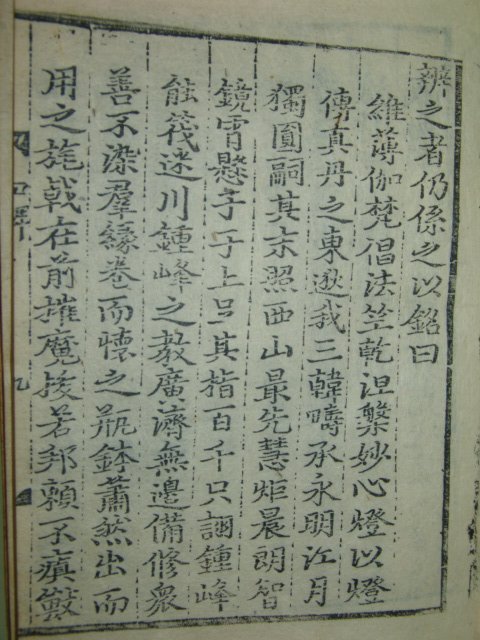 辨之者仍係之以銘曰
維薄伽梵倡法竺乾涅槃妙心燈以燈
傳真丹之東逖我三韓疇承永明江月
獨圓嗣其末照西山最先慧炬晨朗智
鏡宵懸上足其指百千只詡鍾峰
能筏迷川鍾峰之教廣濟無邊備修衆
善不染羣緣卷而懷之瓶鉢蕭然出而
用之旄戟在前摧魔援苦邦賴不瘨